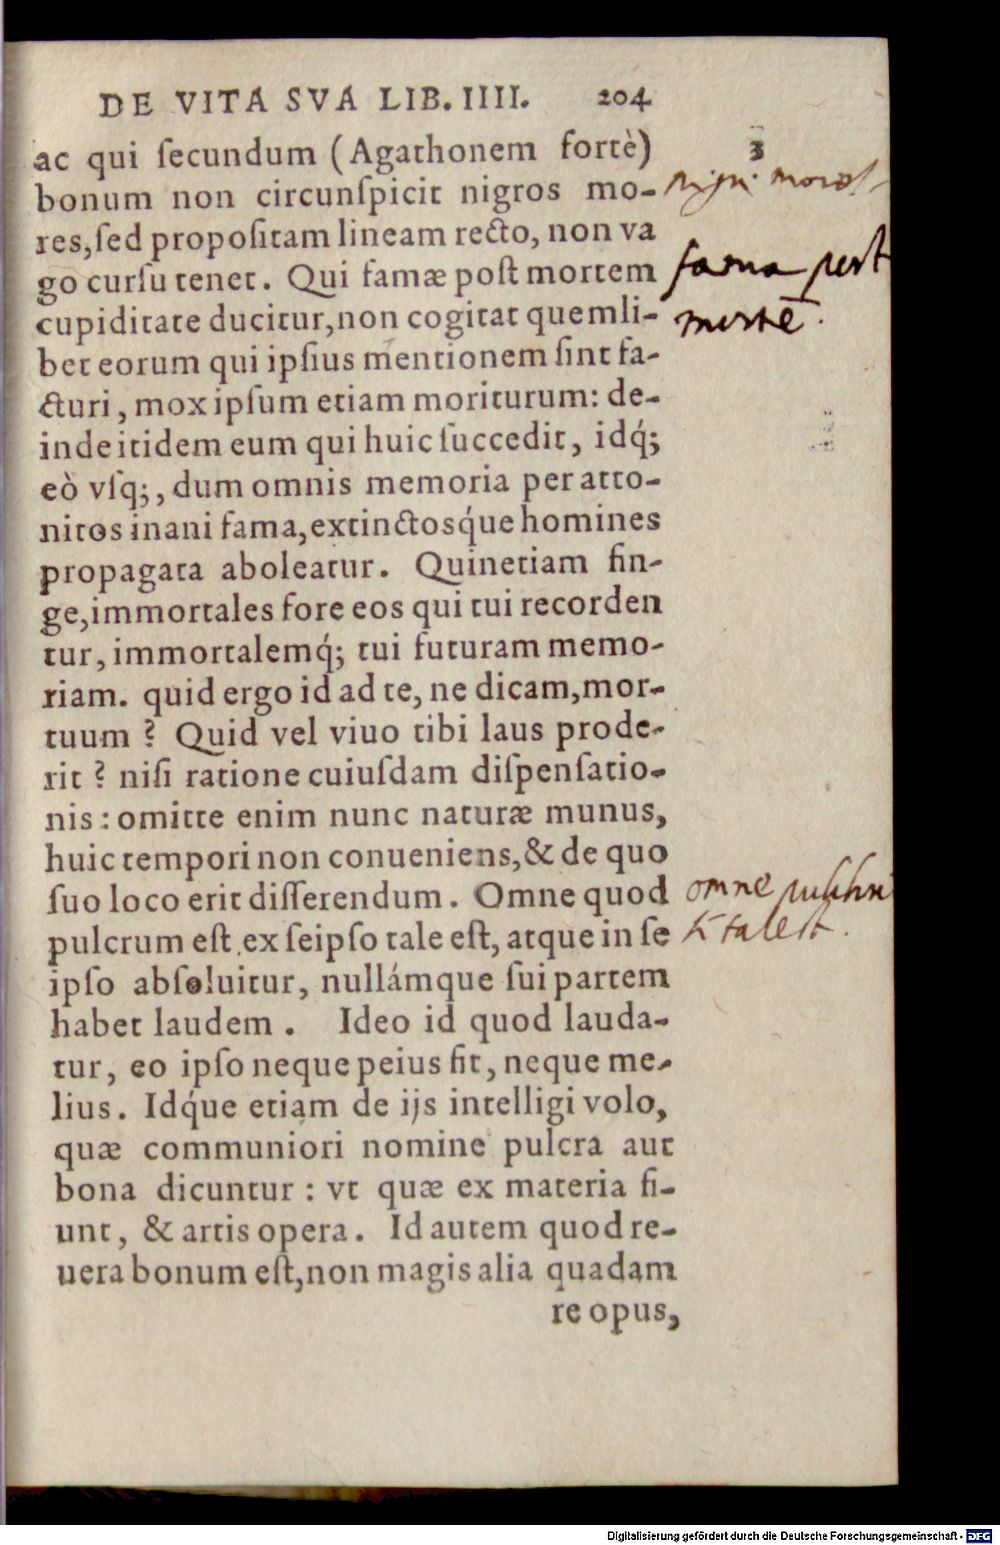 DE VITA SVA LIB. IIII. 204
ac qui ſecundum (Agathonem fortè)
bonum non circunſpicit nigros mo-
res, ſed propoſitam lineam recto, non va
go curſu tenet. Qui famæ poſt mortem
cupiditate ducitur, non cogitat quemli-
bet eorum qui ipſius mentionem ſint fa-
cturi, mox ipſum etiam moriturum: de-
inde itidem eum qui huic ſuccedit, idq́;
eò vſq;, dum omnis memoria per atto-
nitos inani fama, extinctosq́ue homines
propagata aboleatur. Quinetiam fin-
ge, immortales fore eos qui tui recorden
tur, immortalemq́; tui futuram memo-
riam. quid ergo id ad te, ne dicam, mor-
tuum? Quid vel viuo tibi laus prode-
rit? niſi ratione cuiuſdam diſpenſatio-
nis: omitte enim nunc naturæ munus,
huic tempori non conueniens, & de quo
ſuo loco erit diſſerendum. Omne quod
pulcrum eſt, ex ſeipſo tale eſt, atque in ſe
ipſo abſoluitur, nullámque ſui partem
habet laudem. Ideo id quod lauda-
tur, eo ipſo neque peius fit, neque me-
lius. Idq́ue etiam de ijs intelligi volo,
quæ communiori nomine pulcra aut
bona dicuntur: vt quæ ex materia fi-
unt, & artis opera. Id autem quod re-
uera bonum eſt, non magis alia quadam
re opus,
3
fama post
mortē.
omne
tale est.
Digitalisierung gefördert durch die Deutsche Forschungsgemeinschaft - DFG